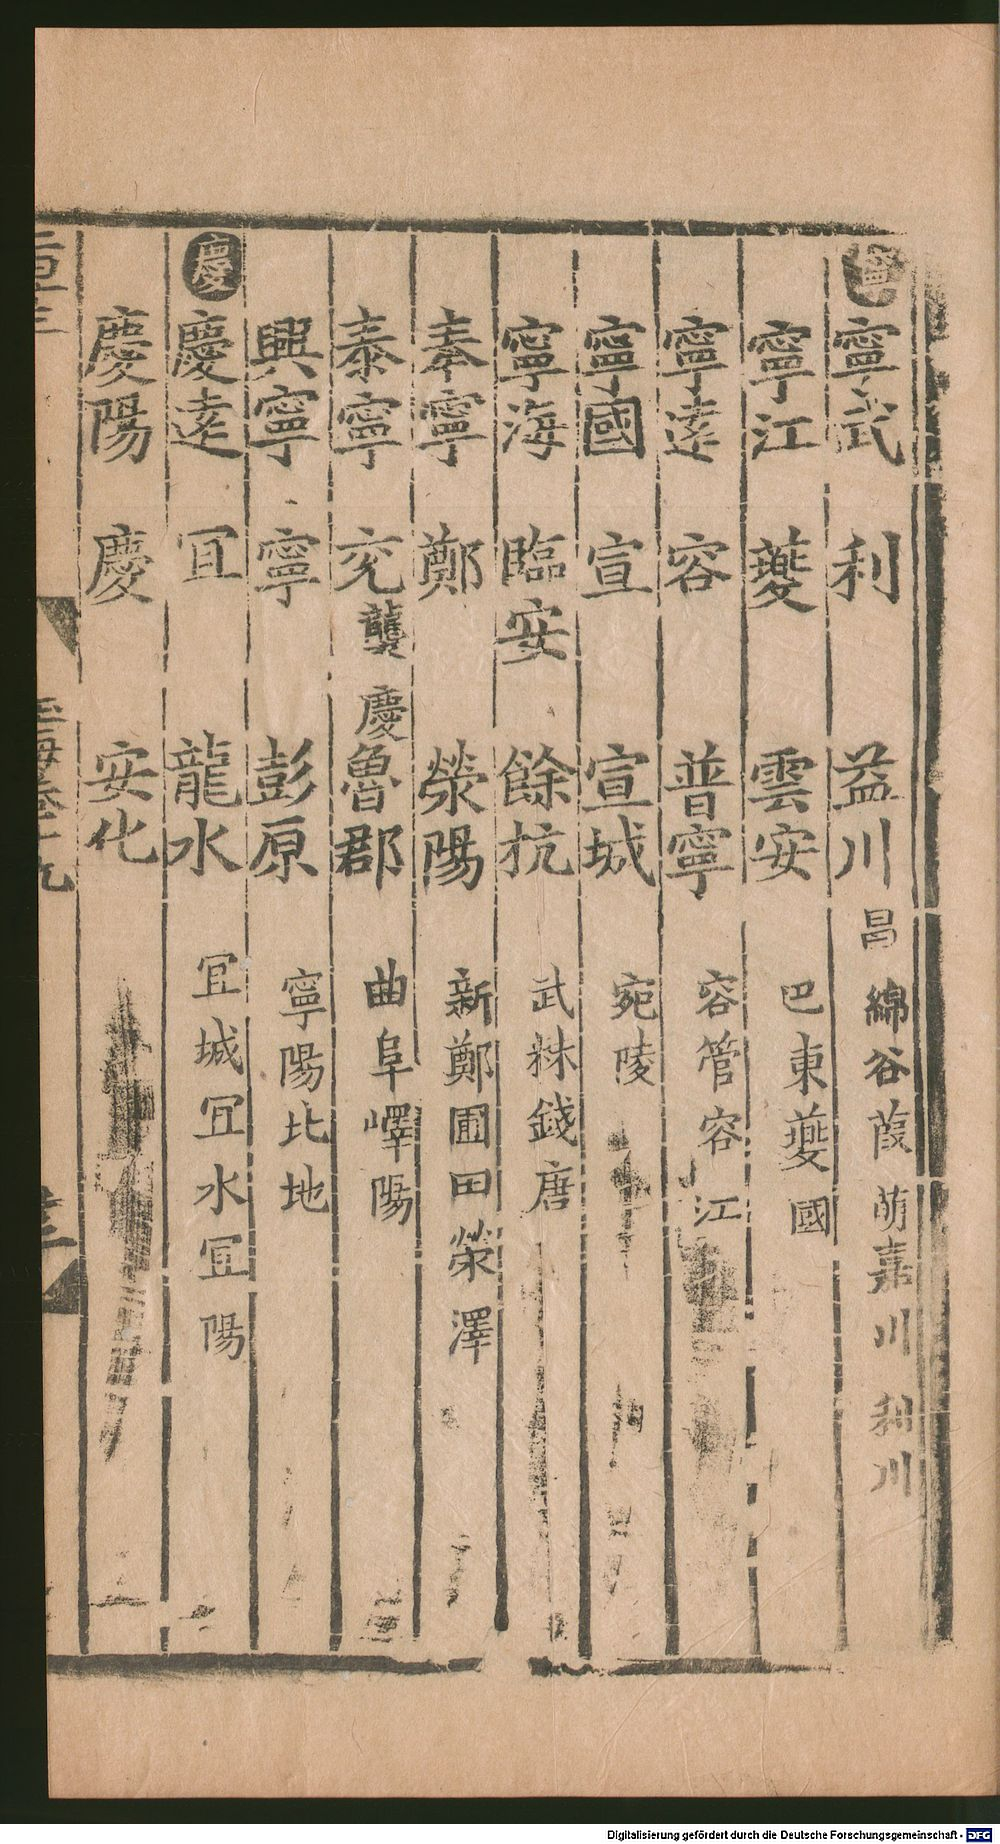 寧武 利 益川 昌 綿谷 葭萌 嘉川 利川
寧江 夔 雲安 巴東 夔國
寧遠 容 普寧 容管 容江
寧國 宣 宣城 宛陵
寧海 臨安 餘杭 武林 錢唐
奉寧 鄭 滎陽 新鄭 圃田 滎澤
泰寧 兖 龔慶 魯郡 曲阜 嶧陽
興寧 寧 彭原 寧陽 北地
慶 慶遠 宜 龍水 宜城 宜水 宜陽
慶陽 慶 安化
Digitalisierung gefördert durch die Deutsche Forschungsgemeinschaft - DFG